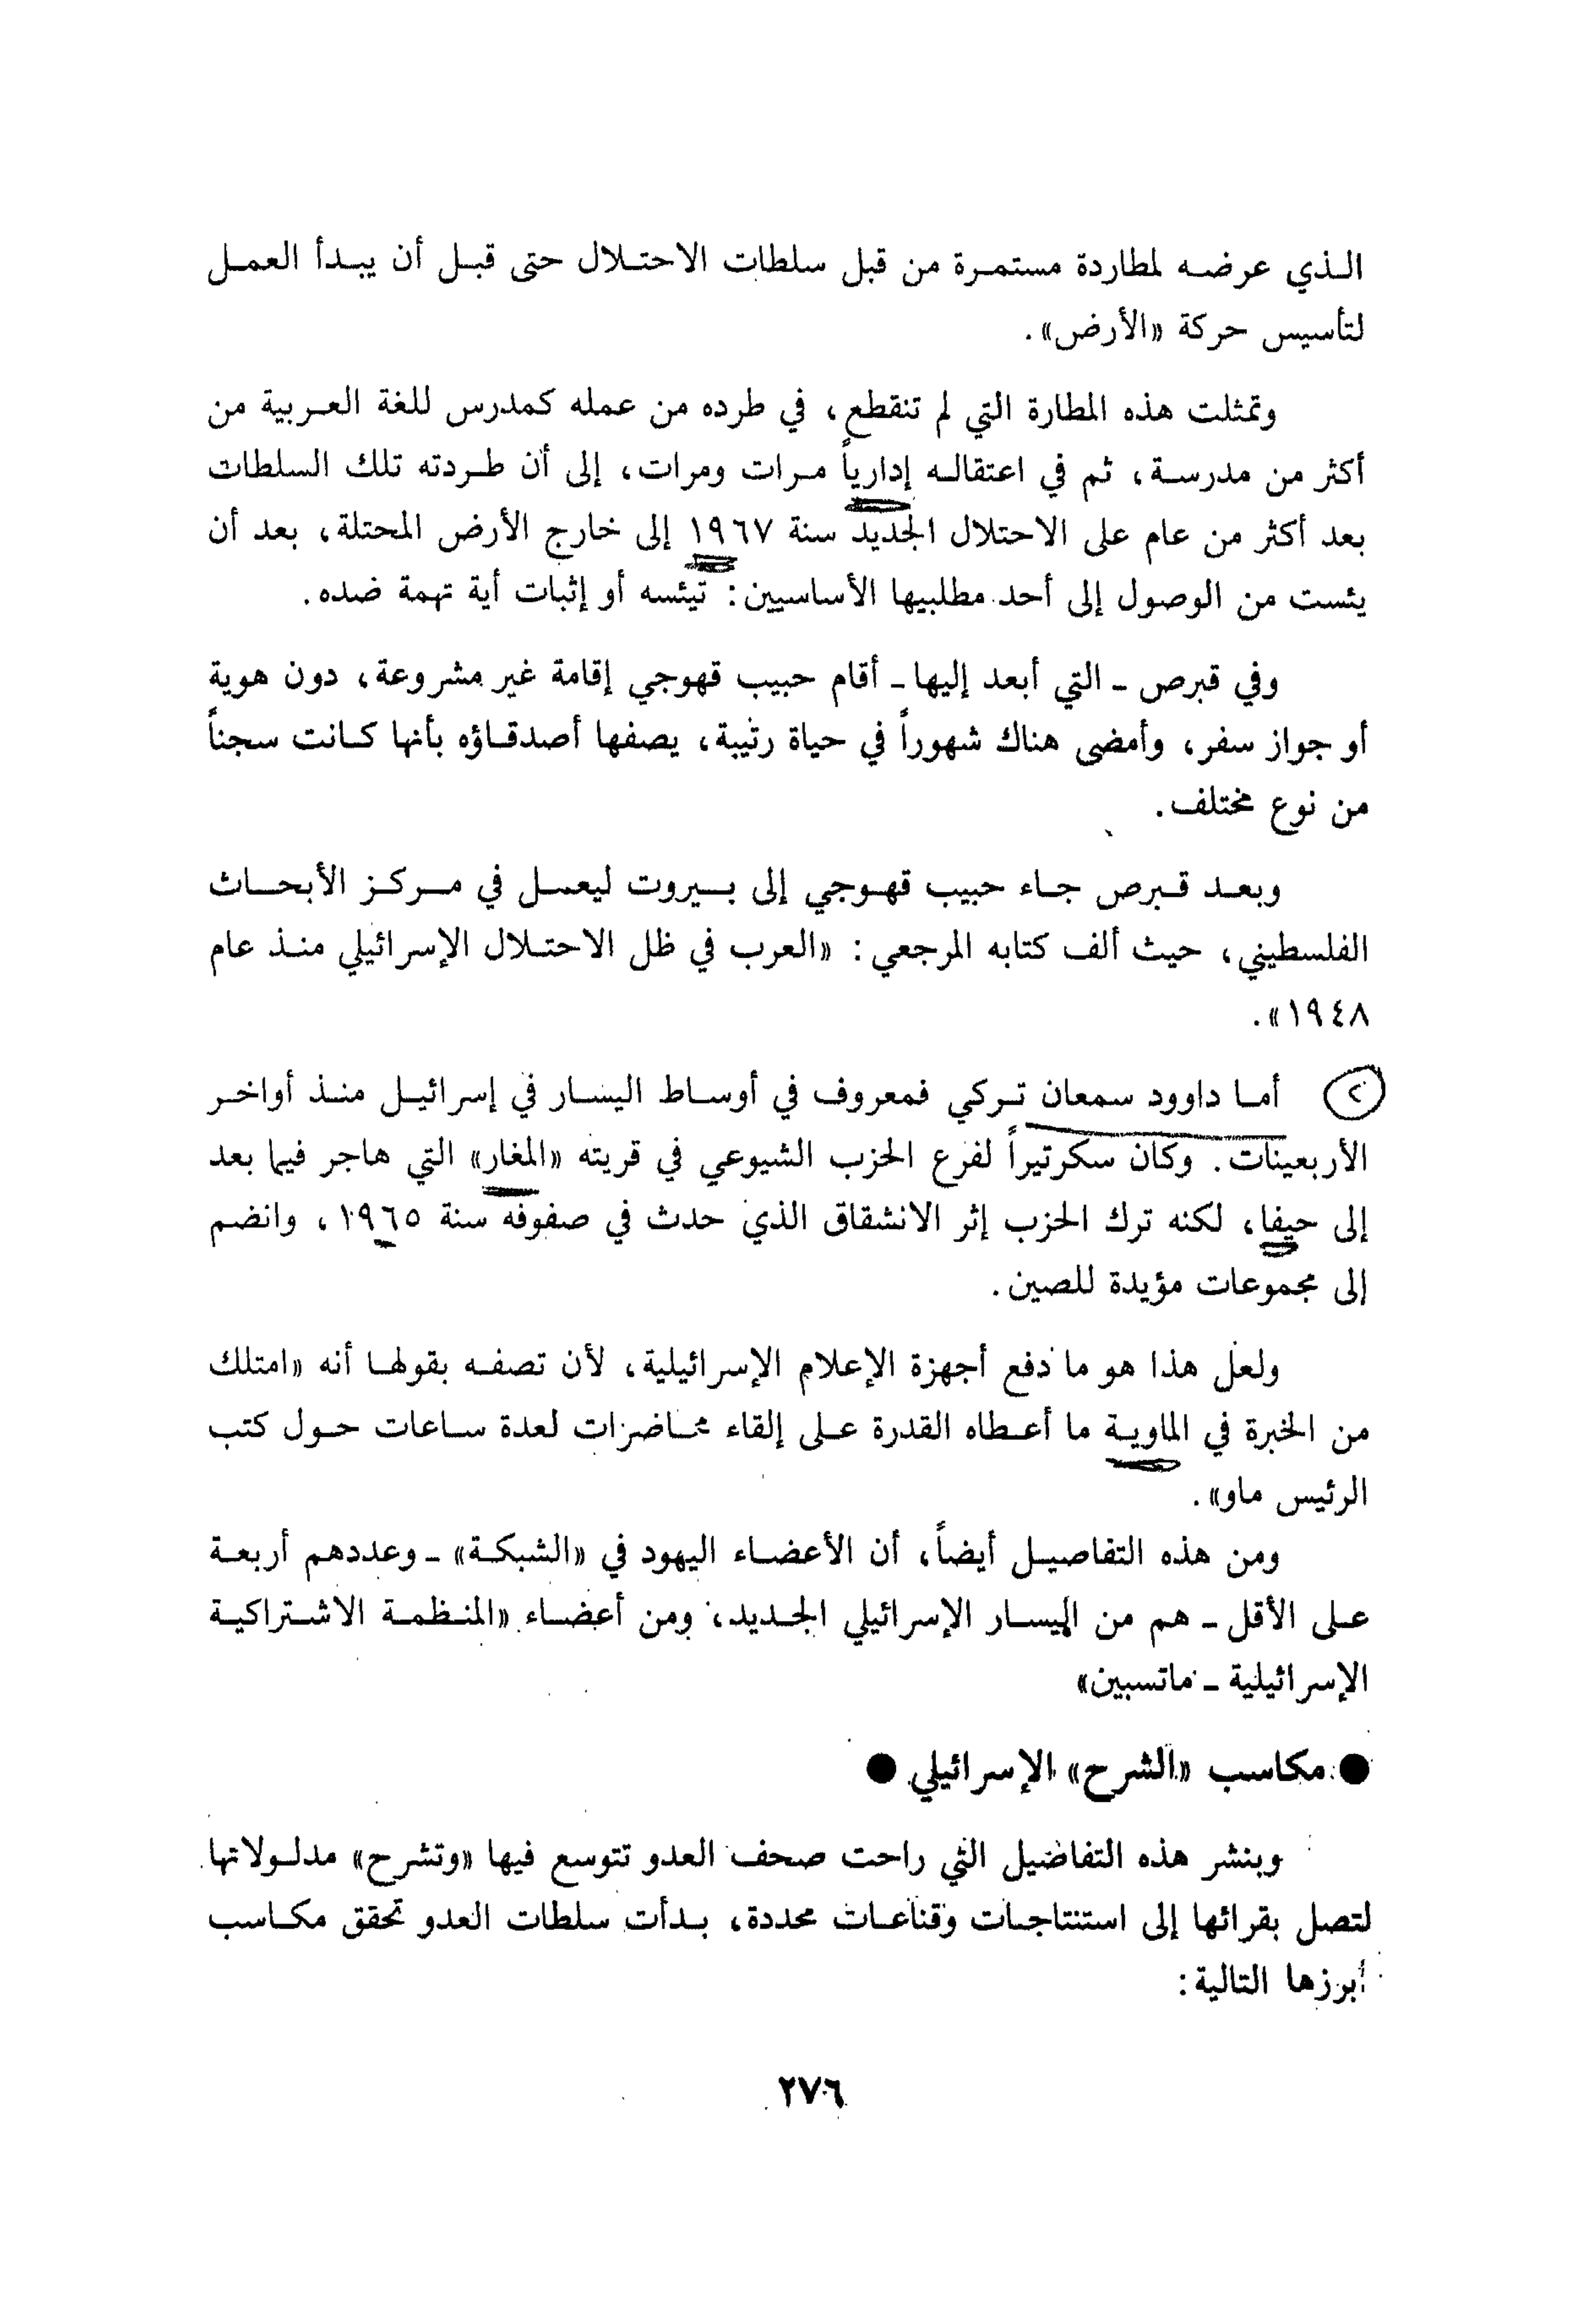 الذي عرضه لمطاردة مستمرة من قبل سلطات الاحتلال حتى قبل أن يبدأ العمل
لتأسيس حركة «الأرض».
وتمثلت هذه المطارة التي لم تنقطع، في طرده من عمله كمدرس للغة العربية من
أكثر من مدرسة، ثم في اعتقاله إدارياً مرات ومرات، إلى أن طردته تلك السلطات
بعد أكثر من عام على الاحتلال الجديد سنة ١٩٦٧ إلى خارج الأرض المحتلة، بعد أن
يئست من الوصول إلى أحد مطلبيها الأساسيين: تيئسه أو إثبات أية تهمة ضده.
وفي قبرص - التي أبعد إليها - أقام حبيب قهوجي إقامة غير مشروعة، دون هوية
أو جواز سفر، وأمضى هناك شهوراً في حياة رتيبة، يصفها أصدقاؤه بأنها كانت سجناً
من نوع مختلف.
وبعد قبرص جاء حبيب قهوجي إلى بيروت ليعمل في مركز الأبحاث
الفلسطيني، حيث ألف كتابه المرجعي: «العرب في ظل الاحتلال الإسرائيلي منذ عام
١٩٤٨».
٢ أما داوود سمعان تركي فمعروف في أوساط اليسار في إسرائيل منذ أواخر
الأربعينات. وكان سكرتيراً لفرع الحزب الشيوعي في قريته «المغار» التي هاجر فيما بعد
إلى حيفا، لكنه ترك الحزب إثر الانشقاق الذي حدث في صفوفه سنة ١٩٦٥، وانضم
إلى مجموعات مؤيدة للصين.
ولعل هذا هو ما دفع أجهزة الإعلام الإسرائيلية، لأن تصفه بقولها أنه «امتلك
من الخبرة في الماوية ما أعطاه القدرة على إلقاء محاضرات لعدة ساعات حول كتب
الرئيس ماو».
ومن هذه التفاصيل أيضاً، أن الأعضاء اليهود في «الشبكة» - وعددهم أربعة
على الأقل - هم من اليسار الإسرائيلي الجديد، ومن أعضاء «المنظمة الاشتراكية
الإسرائيلية - ماتسبين»
● مكاسب «الشرح» الإسرائيلي ●
وبنشر هذه التفاصيل التي راحت صحف العدو تتوسع فيها «وتشرح» مدلولاتها
لتصل بقرائها إلى استنتاجات وقناعات محددة، بدأت سلطات العدو تحقق مكاسب
أبرزها التالية:
٢٧٦